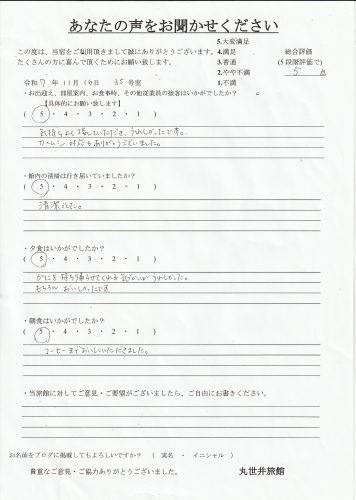 あなたの声をお聞かせください
この度は、当宿をご利用頂きまして誠にありがとうございます。
たくさんの方に喜んで頂くためにお願い致します。
5.大変満足
4.満足
3.普通
2.やや不満
1.不満
総合評価
(5段階評価で)
5 点
令和 7 年 11 月 16 日 35 号室
・お出迎え、部屋案内、お食事時、その他従業員の接客はいかがでしたか?
【具体的にお願い致します】
( 5 ・ 4 ・ 3 ・ 2 ・ 1 )
気持ちよく接していただき、うれしかったです。
カメムシ対応もありがとうございました。
・館内の清掃は行き届いていましたか?
( 5 ・ 4 ・ 3 ・ 2 ・ 1 )
清潔でした。
・夕食はいかがでしたか?
( 5 ・ 4 ・ 3 ・ 2 ・ 1 )
かにを持ち帰らせてくれる気づかいがうれしかった。
もちろん おいしかったです
・朝食はいかがでしたか?
( 5 ・ 4 ・ 3 ・ 2 ・ 1 )
コーヒーまでおいしくいただきました。
・当旅館に対してご意見・ご要望がございましたら、ご自由にお書きください。
お名前をブログに掲載してもよろしいですか? ( 実名 ・ イニシャル )
貴重なご意見・ご協力ありがとうございました。
丸世井旅館